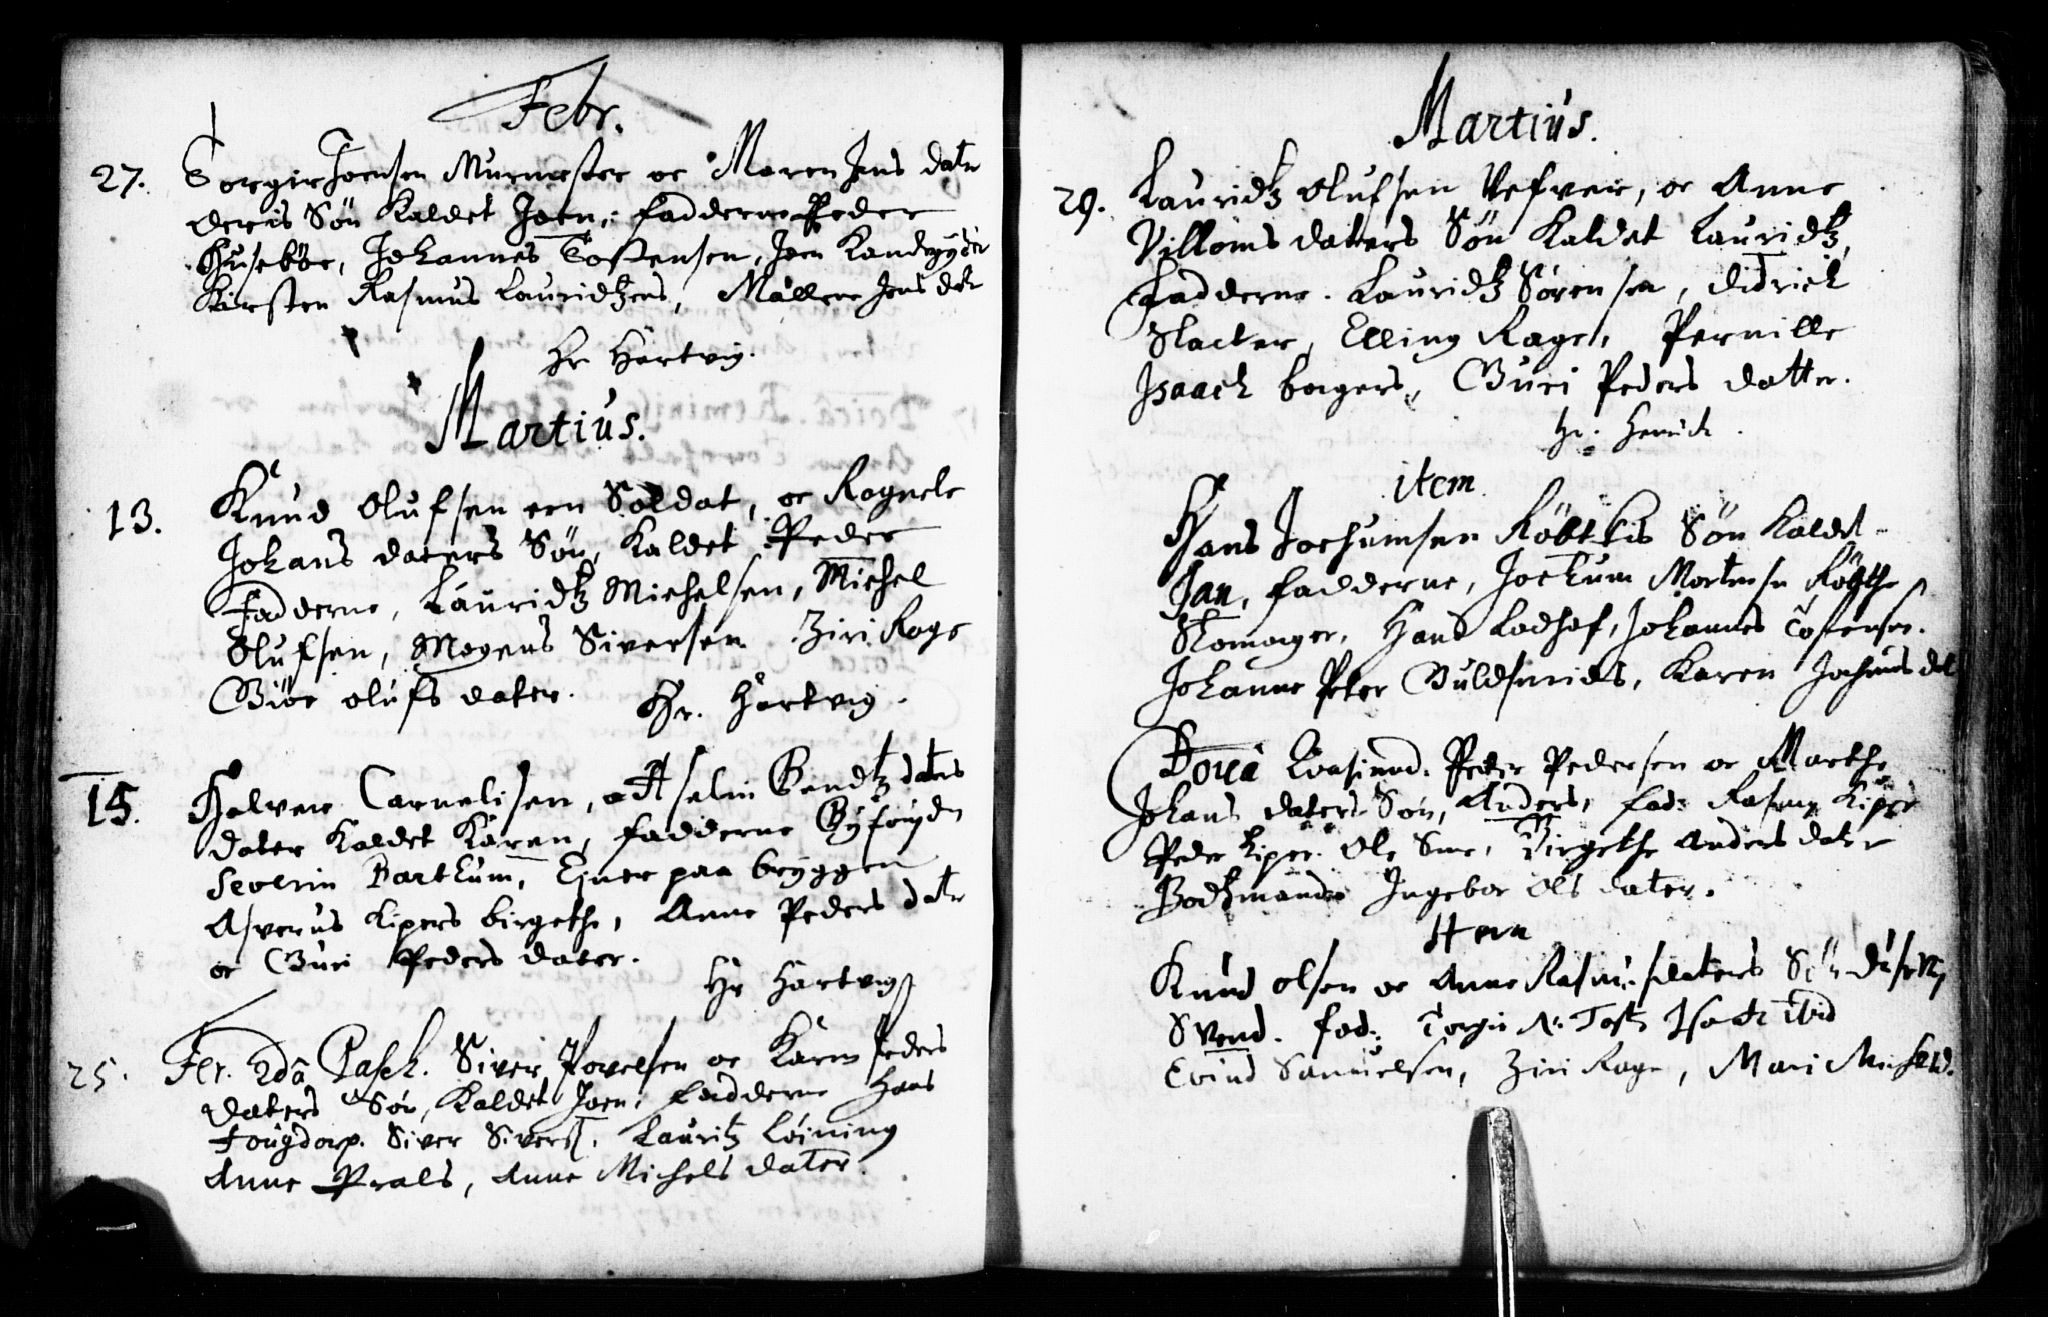 Febr.
27. Torgier Joensen Murmester oc Maren Jens datr
deris Søn Kaldet Joen; fadderne Peder
Husebøe, Johannes Tostensen, Joen Kandegyder
Kirsten Rasmus Lauridtzens, Mallene Jens dtr
Hr Hartvig.
Martius.
13. Knud Olufsen een Soldat, oc Ragnele
Johans daters Søn, Kaldet Peder
Fadderne, Lauridtz Michelsen, Michel
Olufsen, Mogens Siversen Ziri Rogs
Giøe olufs dater. Hr. Hartvig.
15. Halver Carnelisen, Aselin Bendtz daters
dater Kaldet Karen, fadderne Byfougden
Severin Bartkum, Ejner paa bryggen
Asverus Kipers birgethe, Anne Peders datr
oc Guri Peders dater.
Hr Hartvig
25. Fer. 2da Pasch. Siver Povelsen oc Karen Peders
daters Søn, Kaldet Joen; fadderne Hans
Fougdorp. Siver Sivers. Lauritz Løining
Anne Prals, Anne Michels dater.
Martius.
29. Lauridtz Olufsen Vefver, oc Anne
Villoms daters Søn Kaldet Lauridtz,
Fadderne. Lauridtz Sørensen, Didrich
Slacter, Elling Rage, Pernille
Isaach bagers, Guri Peders datter.
Hr. Henrich.
item
Hans Jochumsen Røbtkis Søn Kaldet
Jan, fadderne, Jochum Mortensen Røbtke
Skomager, Hans Lodhof, Johannes Tostensen.
Johanne Peter Guldsmids, Karen Jochums dat
Dom̄ica Qvasimod. Peder Pedersen oc Marthe
Johans daters Søn, Anders, fad: Rasmus Kiper
Peder Kiper. Ole Sme, Birgethe Anders dater
Bodtzmands Ingebor Ols dater.
Item
Knud olsen oc Anne Rasmusdaters Søn
Svend. fad: Torgir Isach ibid
Evind Samuelsen, Ziri Rage, Mari Michelsd.